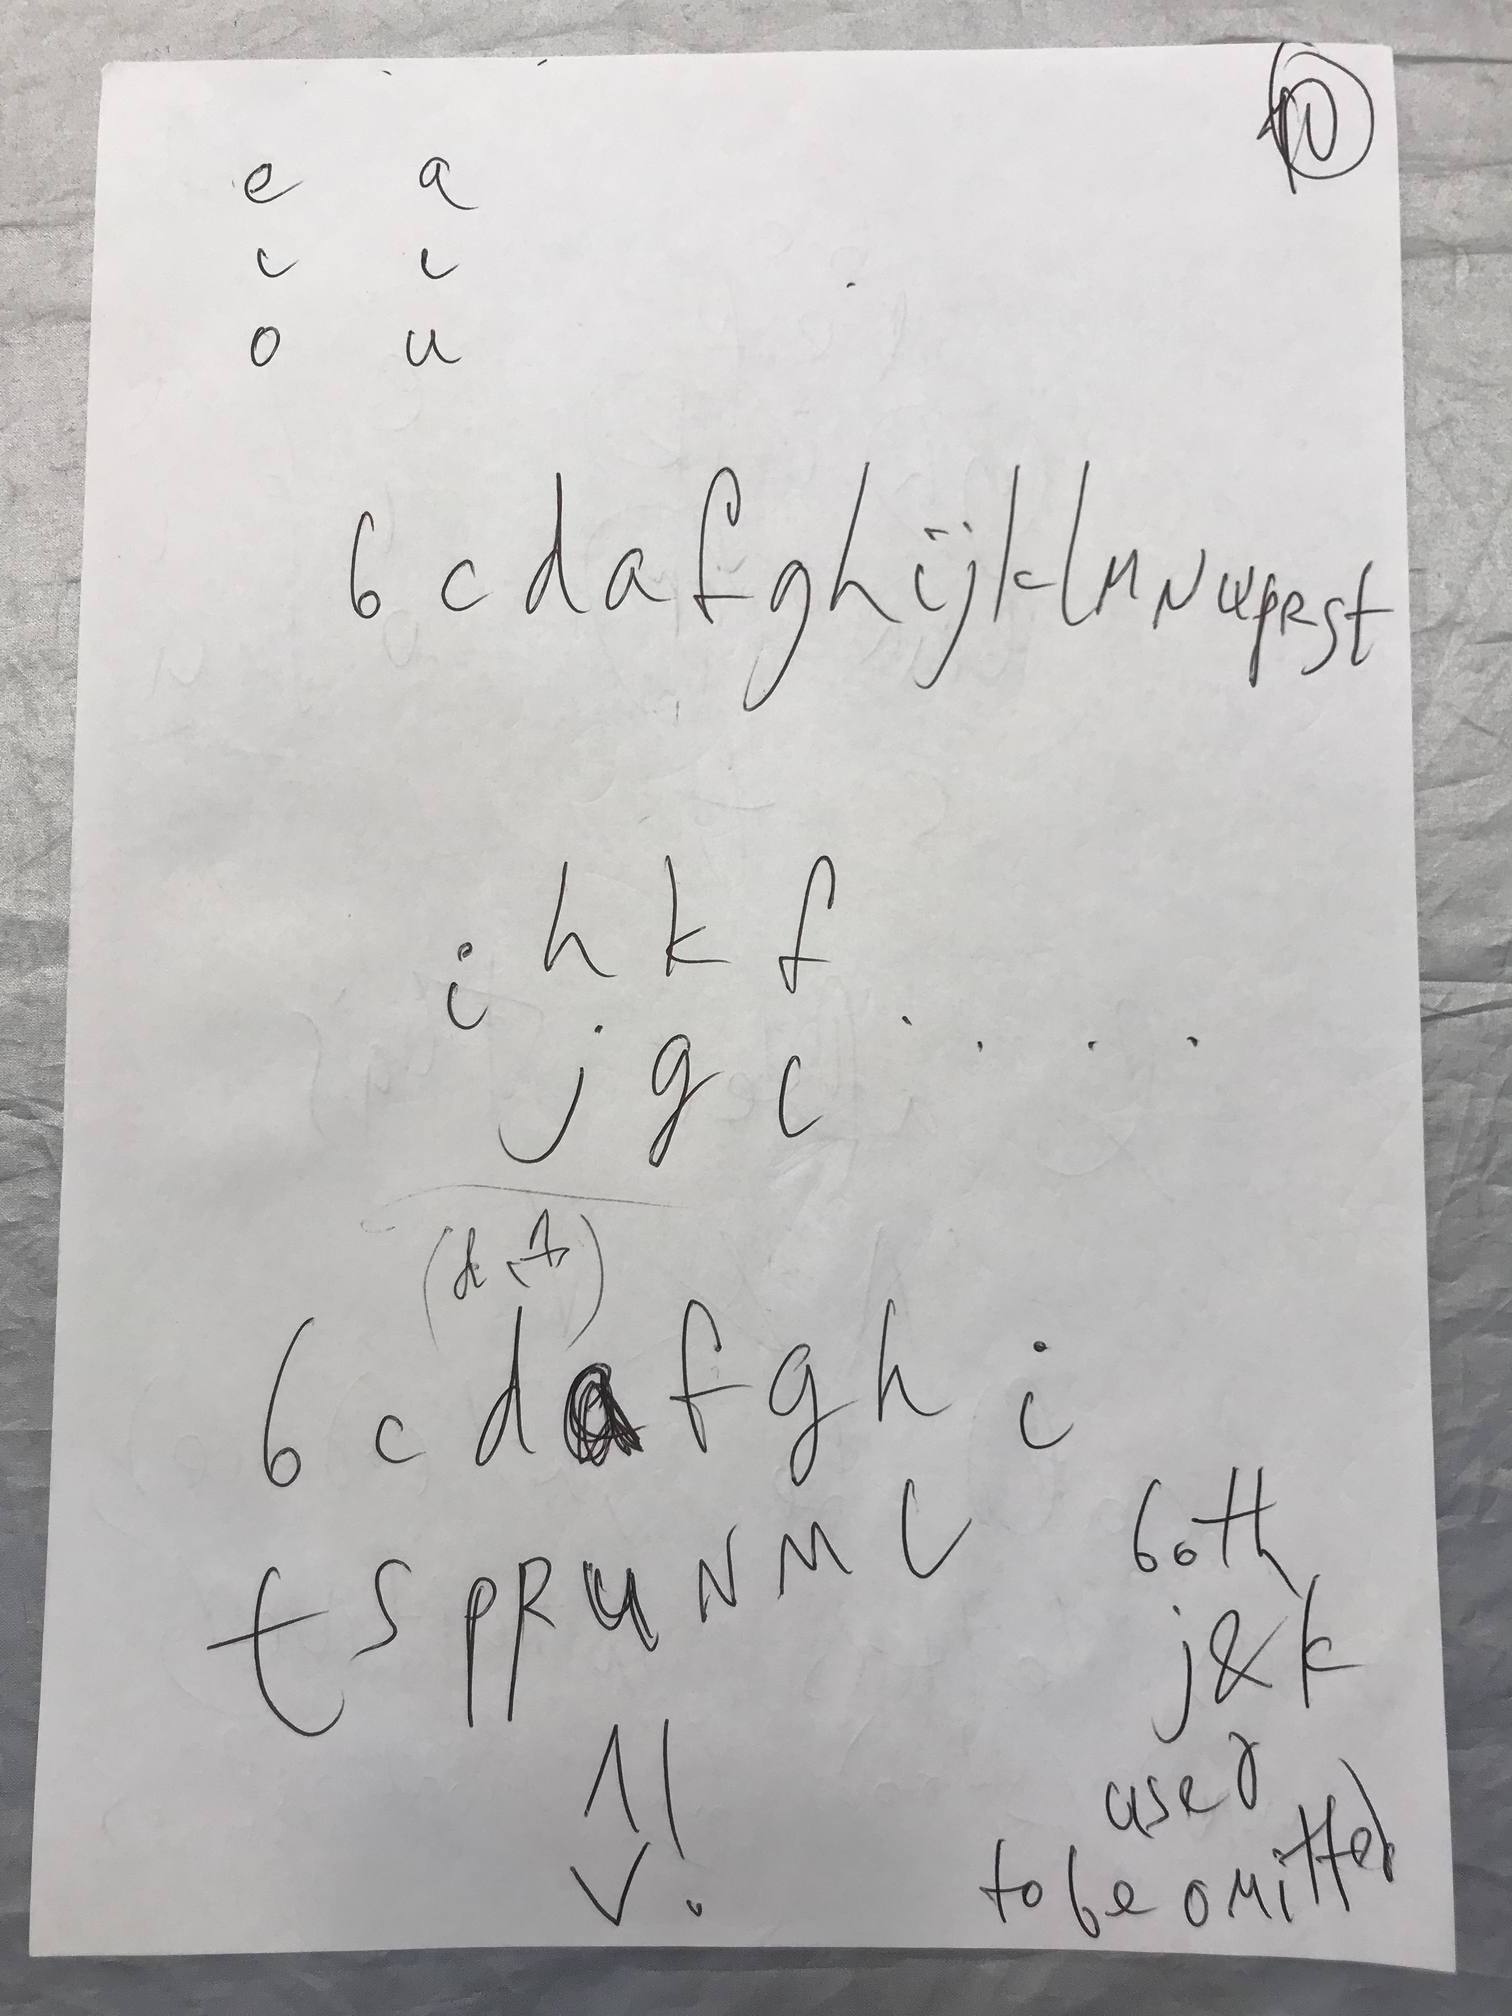 10
e a
i i
o u
b c d a f g h i j k l m n u p r s t
i h k f
j g c . . . .
b c d a f g h i
t s p R u N M L
both
j & k
used
to be omitted
!